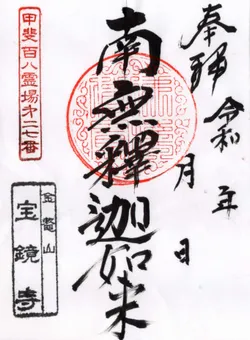 奉拝 令和 年
月 日
南無釋迦如来
甲斐百八霊場才二七番
金鼇山
宝鏡寺